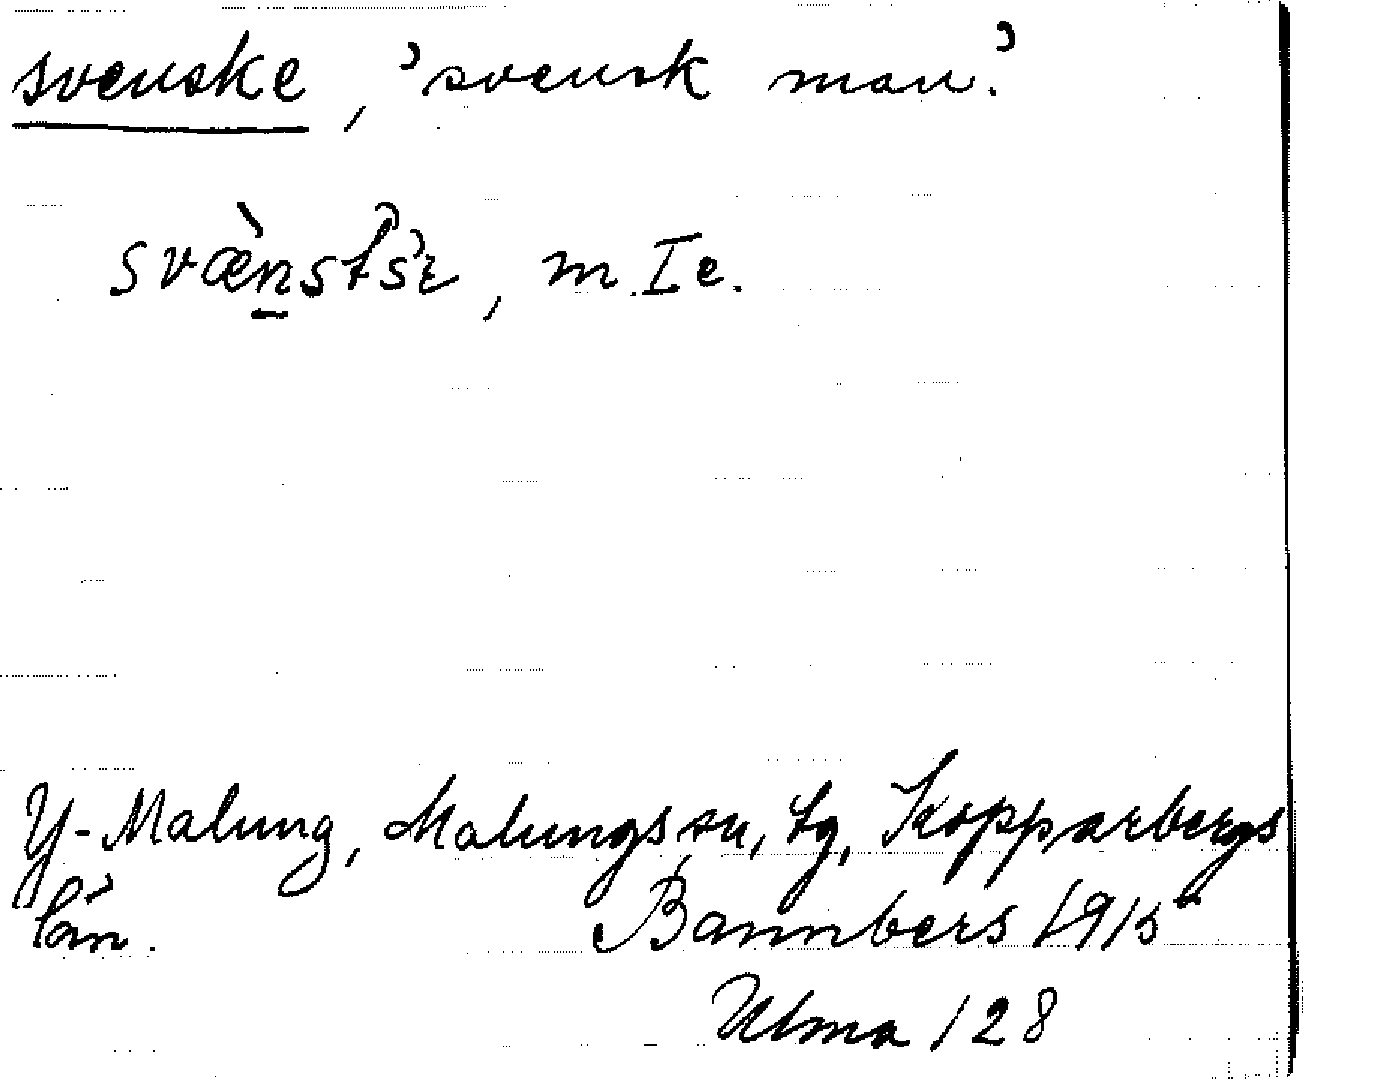 svenske, 'svensk man.'
m. I e.
Y-Malung, Malungs sn, tg, Kopparbergs
län. Bannbers 1915
Ulma 128